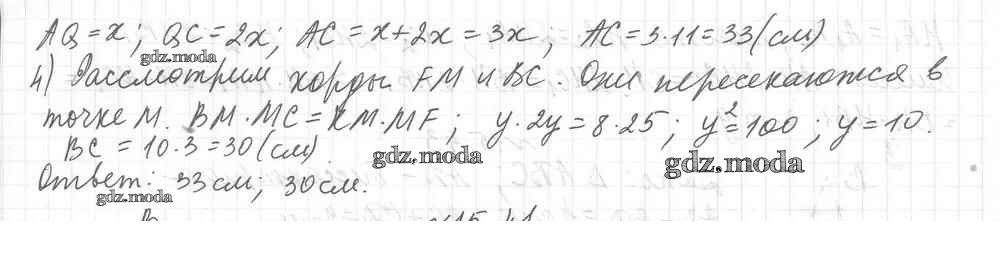 AQ = x; QC = 2x; AC = x + 2x = 3x; AC = 3·11 = 33 (см)
gdz.moda
4) Рассмотрим хорды FM и BC. Они пересекаются в
точке M. BM·MC = KM·MF; y·2y = 8·25; y² = 100; y = 10.
BC = 10·3 = 30 (см)
gdz.moda
gdz.moda
Ответ: 33 см; 30 см.
gdz.moda